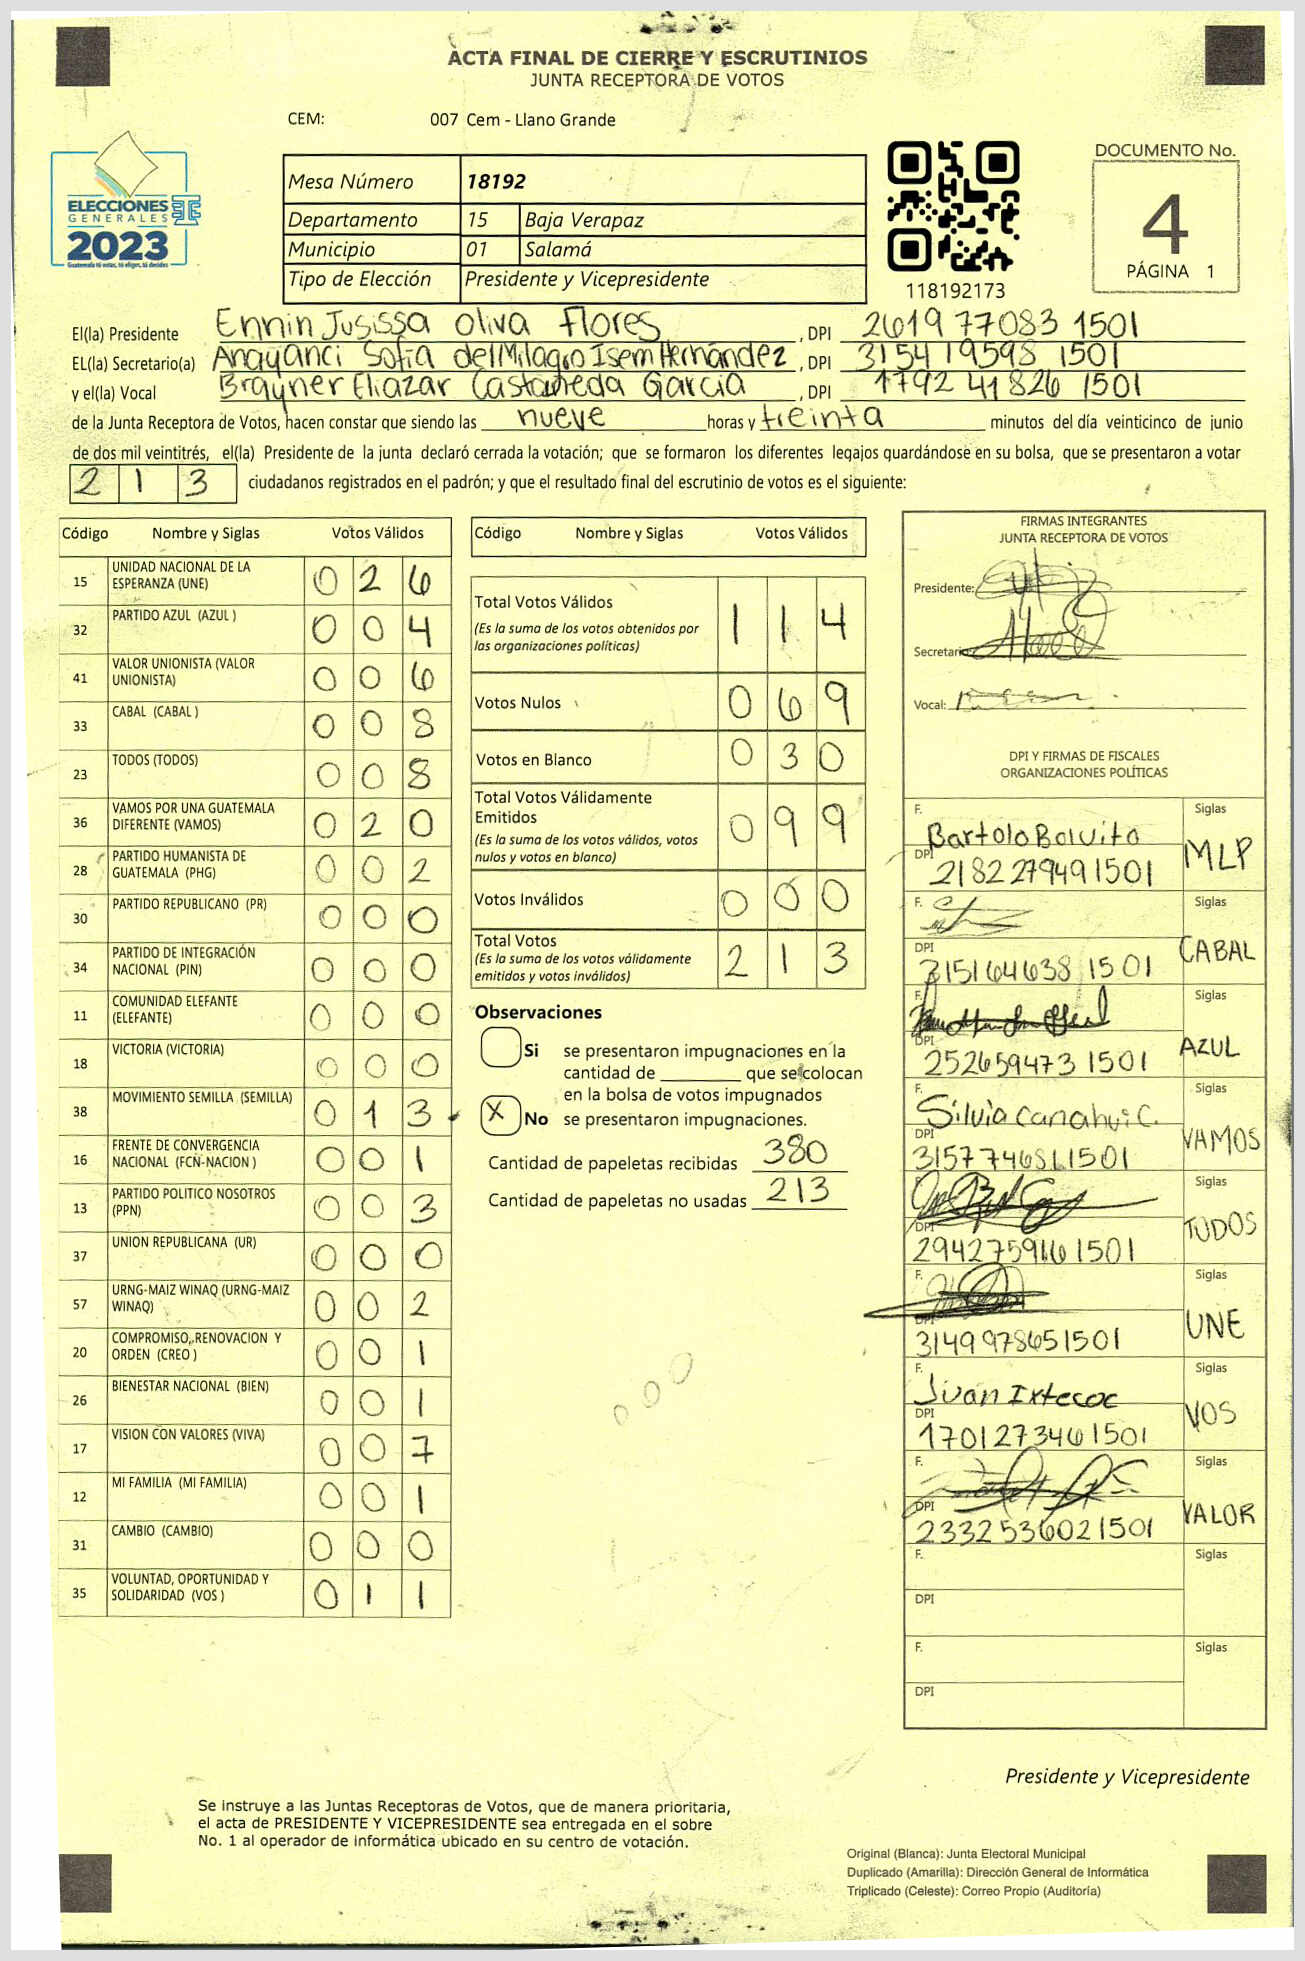 ACTA FINAL DE CIERRE Y ESCRUTINIOS
JUNTA RECEPTORA DE VOTOS
CEM: 007 Cem - Llano Grande
ELECCIONES
GENERALES
2023
Guatemala tú votas, tú eliges, tú decides
Mesa Número 18192
Departamento 15 Baja Verapaz
Municipio 01 Salamá
Tipo de Elección Presidente y Vicepresidente
118192173
DOCUMENTO No.
4
PÁGINA 1
El(la) Presidente Ennin Jusissa Oliva Flores, DPI 2619 77083 1501
EL(la) Secretario(a) Anayanci Sofia del Milagro Isem Hernández, DPI 3154 19598 1501
y el(la) Vocal Brayner Eliazar Castañeda Garcia, DPI 1792 41826 1501
de la Junta Receptora de Votos, hacen constar que siendo las nueve horas y treinta minutos del día veinticinco de junio
de dos mil veintitrés, el(la) Presidente de la junta declaró cerrada la votación; que se formaron los diferentes legajos guardándose en su bolsa, que se presentaron a votar
213 ciudadanos registrados en el padrón; y que el resultado final del escrutinio de votos es el siguiente:
Código Nombre y Siglas Votos Válidos
15 UNIDAD NACIONAL DE LA ESPERANZA (UNE) 026
32 PARTIDO AZUL (AZUL ) 004
41 VALOR UNIONISTA (VALOR UNIONISTA) 006
33 CABAL (CABAL ) 008
23 TODOS (TODOS) 008
36 VAMOS POR UNA GUATEMALA DIFERENTE (VAMOS) 020
28 PARTIDO HUMANISTA DE GUATEMALA (PHG) 002
30 PARTIDO REPUBLICANO (PR) 000
34 PARTIDO DE INTEGRACIÓN NACIONAL (PIN) 000
11 COMUNIDAD ELEFANTE (ELEFANTE) 000
18 VICTORIA (VICTORIA) 000
38 MOVIMIENTO SEMILLA (SEMILLA) 013
16 FRENTE DE CONVERGENCIA NACIONAL (FCN-NACION ) 001
13 PARTIDO POLITICO NOSOTROS (PPN) 003
37 UNION REPUBLICANA (UR) 000
57 URNG-MAIZ WINAQ (URNG-MAIZ WINAQ) 002
20 COMPROMISO, RENOVACION Y ORDEN (CREO ) 001
26 BIENESTAR NACIONAL (BIEN) 001
17 VISION CON VALORES (VIVA) 007
12 MI FAMILIA (MI FAMILIA) 001
31 CAMBIO (CAMBIO) 000
35 VOLUNTAD, OPORTUNIDAD Y SOLIDARIDAD (VOS ) 011
Código Nombre y Siglas Votos Válidos
Total Votos Válidos 114
(Es la suma de los votos obtenidos por las organizaciones políticas)
Votos Nulos 069
Votos en Blanco 030
Total Votos Válidamente Emitidos 099
(Es la suma de los votos válidos, votos nulos y votos en blanco)
Votos Inválidos 000
Total Votos 213
(Es la suma de los votos válidamente emitidos y votos inválidos)
Observaciones
Si se presentaron impugnaciones en la
cantidad de ________ que se colocan
en la bolsa de votos impugnados
X No se presentaron impugnaciones.
Cantidad de papeletas recibidas 380
Cantidad de papeletas no usadas 213
000
FIRMAS INTEGRANTES
JUNTA RECEPTORA DE VOTOS
Presidente:
Secretario:
Vocal:
DPI Y FIRMAS DE FISCALES
ORGANIZACIONES POLÍTICAS
F. Bartolo Bolvito Siglas
DPI 2182279491501 MLP
F. Siglas
DPI 315164638 1501 CABAL
F. Siglas
DPI 252659473 1501 AZUL
F. Silvia Canahui C. Siglas
DPI 3157746811501 VAMOS
F. Siglas
DPI 2942759161501 TODOS
F. Siglas
DPI 3149978651501 UNE
F. Juan Ixtecoc Siglas
DPI 1701273461501 VOS
F. Siglas
DPI 2332536021501 VALOR
F. Siglas
DPI
F. Siglas
DPI
Presidente y Vicepresidente
Se instruye a las Juntas Receptoras de Votos, que de manera prioritaria,
el acta de PRESIDENTE Y VICEPRESIDENTE sea entregada en el sobre
No. 1 al operador de informática ubicado en su centro de votación.
Original (Blanca): Junta Electoral Municipal
Duplicado (Amarilla): Dirección General de Informática
Triplicado (Celeste): Correo Propio (Auditoría)